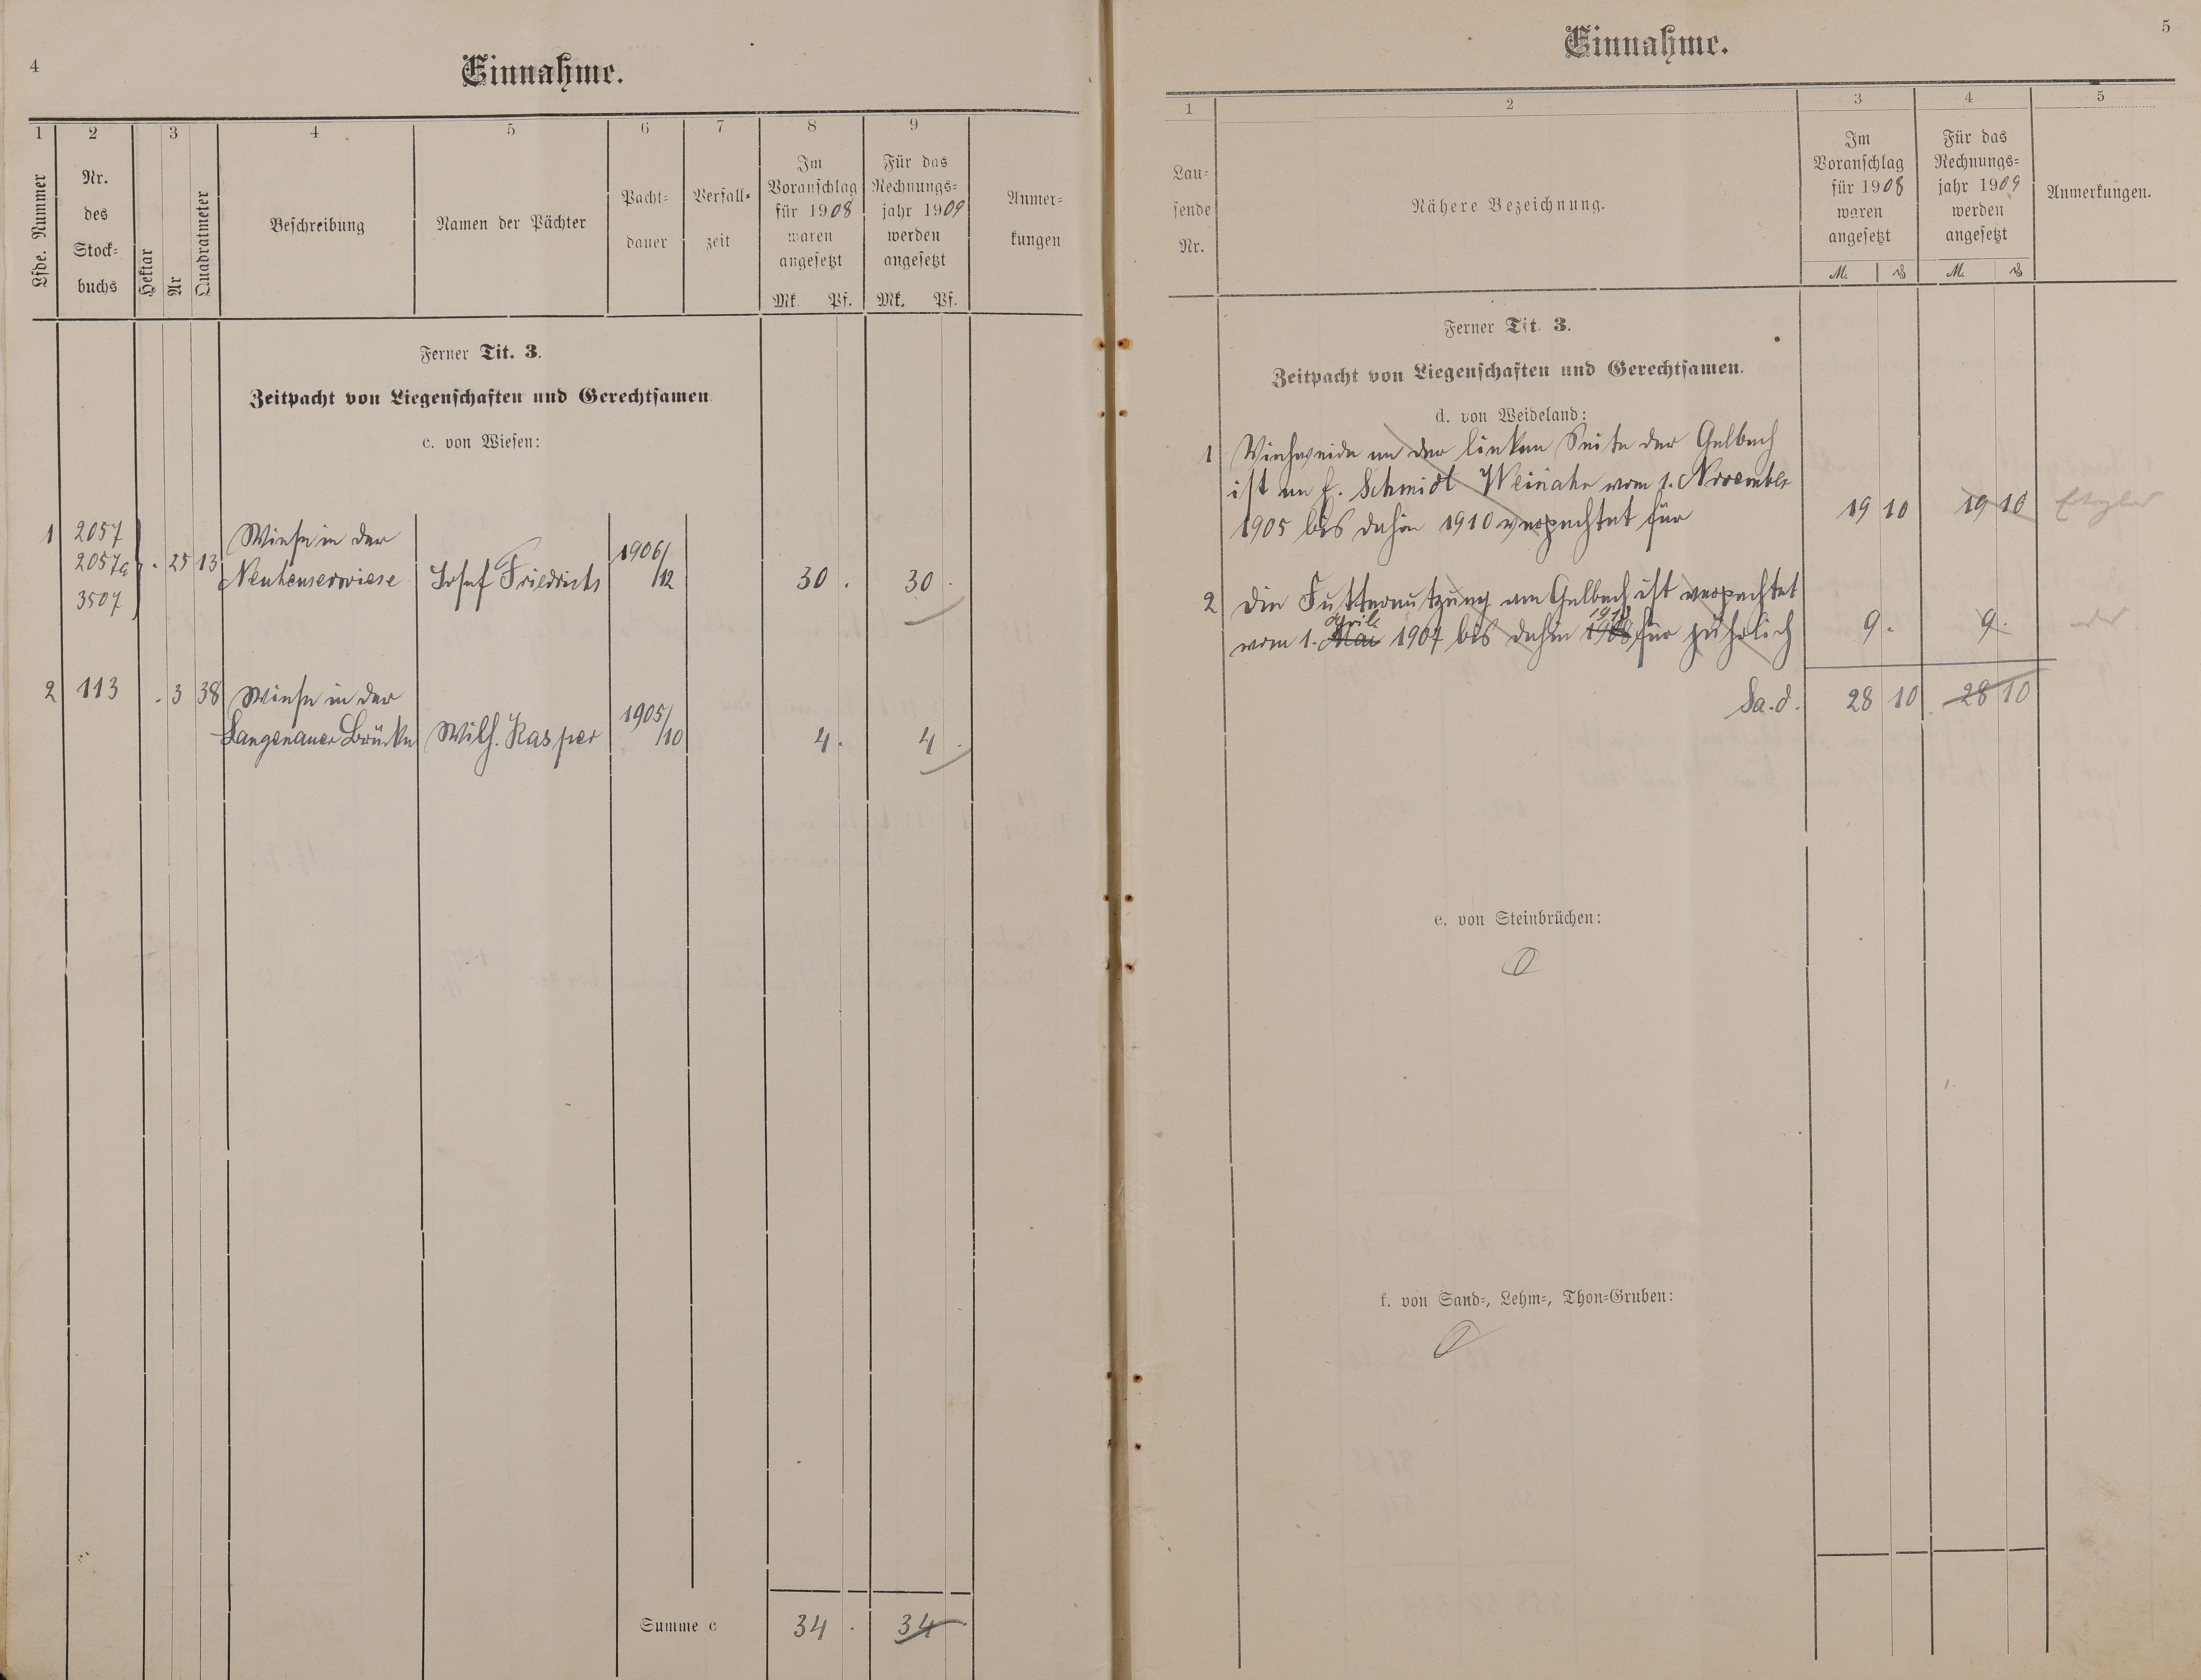 4
Einnahme.
1 2 3 4 5 6 7 8 9
Lfde. Nummer
Nr. des Stock-buchs
Hektar
Ar
Quadratmeter
Beschreibung
Namen der Pächter
Pacht-dauer
Verfall-zeit
Im Voranschlag für 1908 waren angesetzt
Mk. Pf.
Für das Rechnungs-jahr 1909 werden angesetzt
Mk. Pf.
Anmer-kungen
Ferner Tit. 3.
Zeitpacht von Liegenschaften und Gerechtsamen.
c. von Wiesen:
1 2057 Wiese in der 1906/
2057a . 25 13 Neuheuserwiese Josef Friedrichs /12 30 . 30 .
3507
2 113 . 3 38 Wiese in der 1905/
Langenauer Brücke Wilh. Kasper /10 4 . 4 .
Summe c 34 . 34
5
Einnahme.
1 2 3 4 5
Lau-fende Nr.
Nähere Bezeichnung.
Im Voranschlag für 1908 waren angesetzt
M. ₰
Für das Rechnungs-jahr 1909 werden angesetzt
M. ₰
Anmerkungen.
Ferner Tit. 3.
Zeitpacht von Liegenschaften und Gerechtsamen.
d. von Weideland:
1 Viehweide an der linken Seite der Gelbach
ist an f. Schmidt Weinahr vom 1. November
1905 bis dahin 1910 verpachtet für 19 10 19 10
2 Die Futternutzung am Gelbach ist verpachtet
April 1913
vom 1. Mai 1907 bis dahin 1908 für jährlich 9 . 9 .
Sa. d. 28 10 28 10
e. von Steinbrüchen:
0
f. von Sand-, Lehm-, Thon-Gruben:
0